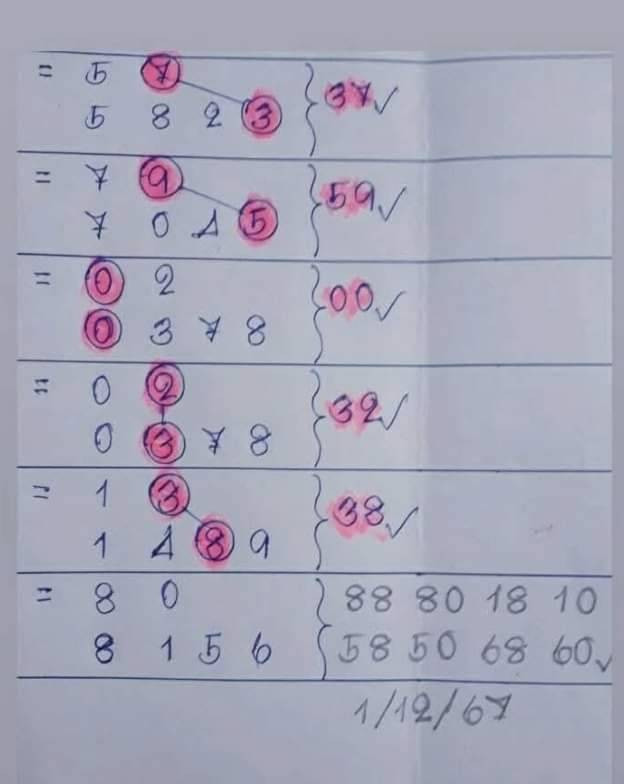 = 5 7
5 8 2 3 } 37✓
= 7 9
7 0 4 5 } 59✓
= 0 2
0 3 7 8 } 00✓
= 0 2
0 3 7 8 } 32✓
= 1 3
1 4 8 9 } 38✓
= 8 0 } 88 80 18 10
8 1 5 6 } 58 50 68 60✓
1/12/67